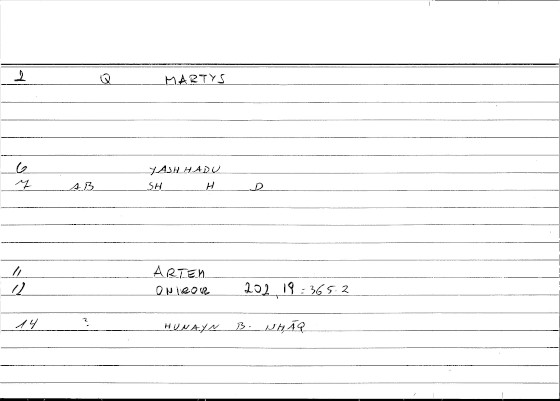 2 Q MARTYS
6 YASHHADU
7 AB SH H D
11 ARTEM
12 ONIROR 202,19:365 2
14 ? HUNAYN B. ISHĀQ